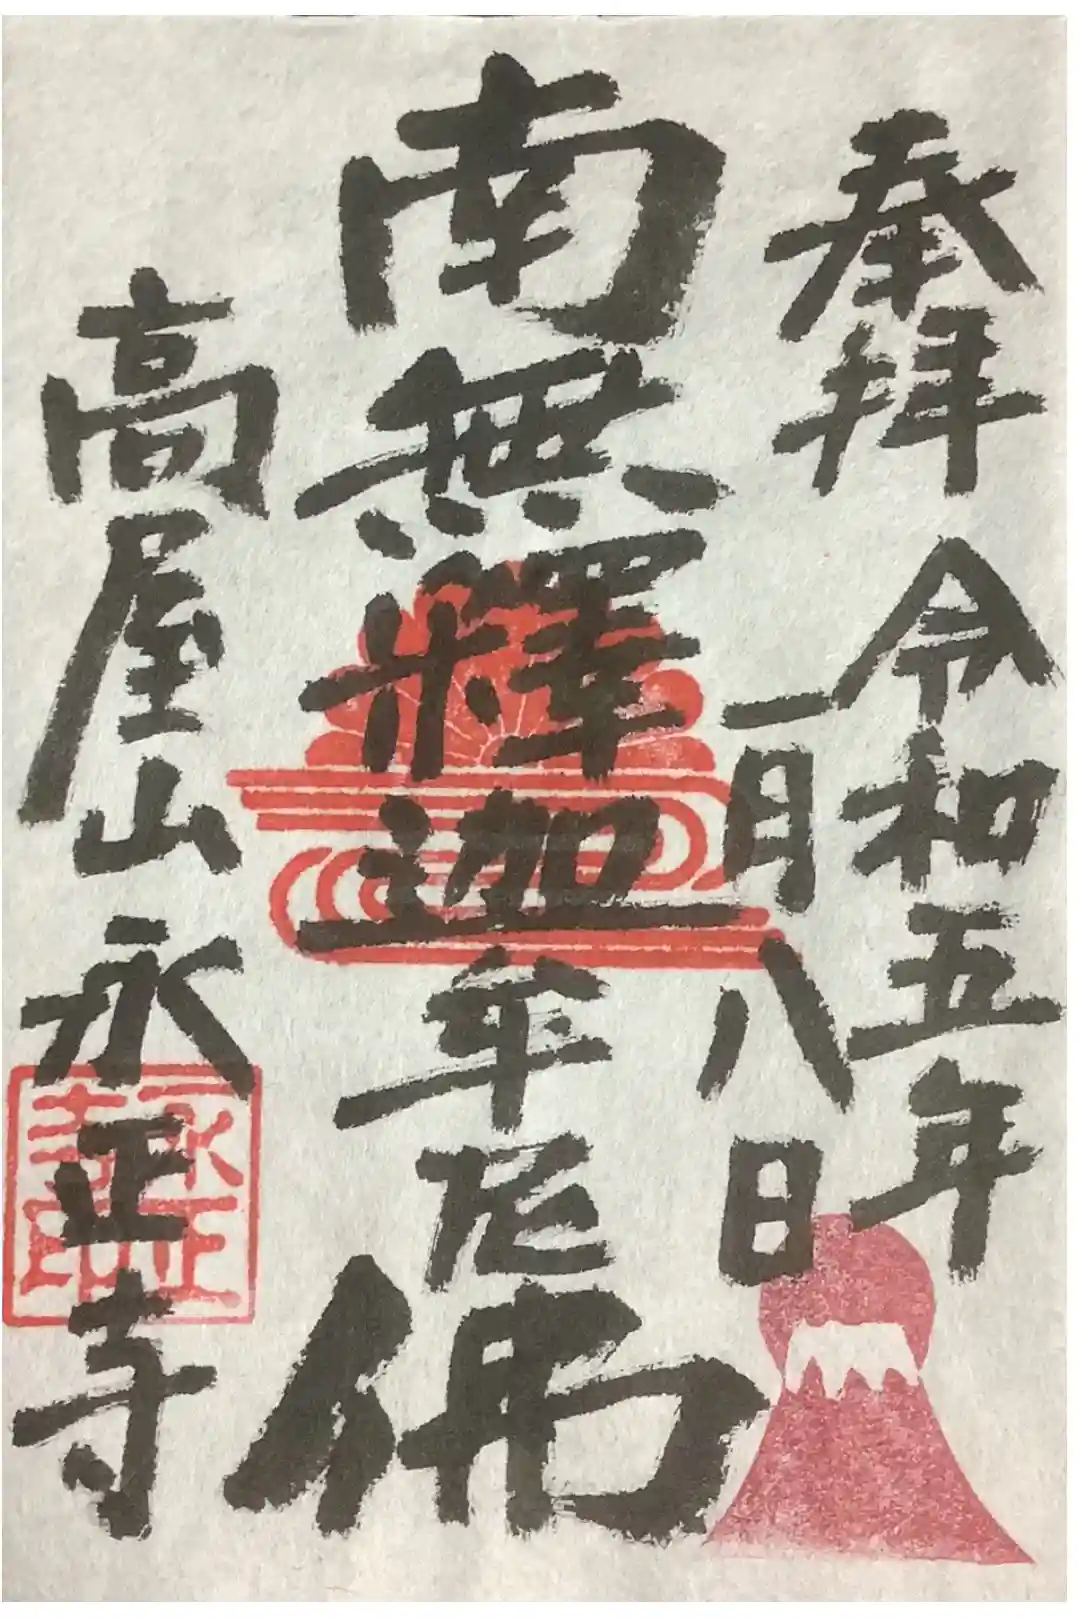 奉拝 令和五年
一月八日
南無釋迦牟尼佛
高屋山永正寺
永正寺印